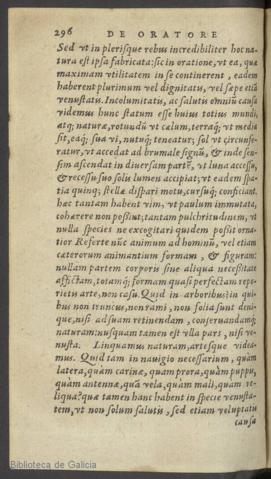 296 DE ORATORE
Sed vt in plerisque rebus incredibiliter hoc na-
tura est ipsa fabricata: sic in oratione, vt ea, quæ
maximam vtilitatem in se continerent, eadem
haberent plurimum vel dignitatis, vel sæpe etiã
venustatis. Incolumitatis, ac salutis omniũ causa
videmus hunc statum esse huius totius mundi,
atq; naturæ, rotundũ vt cælum, terraq; vt media
sit, eaq; sua vi, nutuq; teneatur; sol vt circunfe-
ratur, vt accedat ad brumale signũ, & inde sen-
sim ascendat in diuersam partẽ, vt luna accessu,
& recessu suo solis lumen accipiat; vt eadem spa-
tia quinq; stellæ dispari motu, cursuq; conficiant.
hæc tantam habent vim, vt paulum immutata,
cohærere non possint; tantam pulchritudinem, vt
nulla species ne excogitari quidem possit orna-
tior Referte nũc animum ad hominũ, vel etiam
cæterorum animantium formam, & figuram:
nullam partem corporis sine aliqua necessitate
affictam, totamq; formam quasi perfectam repe-
rietis arte, non casu. Quid in arboribus? in qui-
bus non truncus, non rami, non folia sunt deni-
que, nisi ad suam retinendam, conseruandamq;
naturam: nusquam tamen est vlla pars, nisi ve-
nusta. Linquamus naturam, artesque videa-
mus. Quid tam in nauigio necessarium, quàm
latera, quàm carinæ, quàm prora, quàm puppis,
quàm antennæ, quã vela, quàm mali, quàm re-
liqua? quæ tamen hanc habent in specie venusta-
tem, vt non solum salutis, sed etiam voluptatis
causa
Biblioteca de Galicia